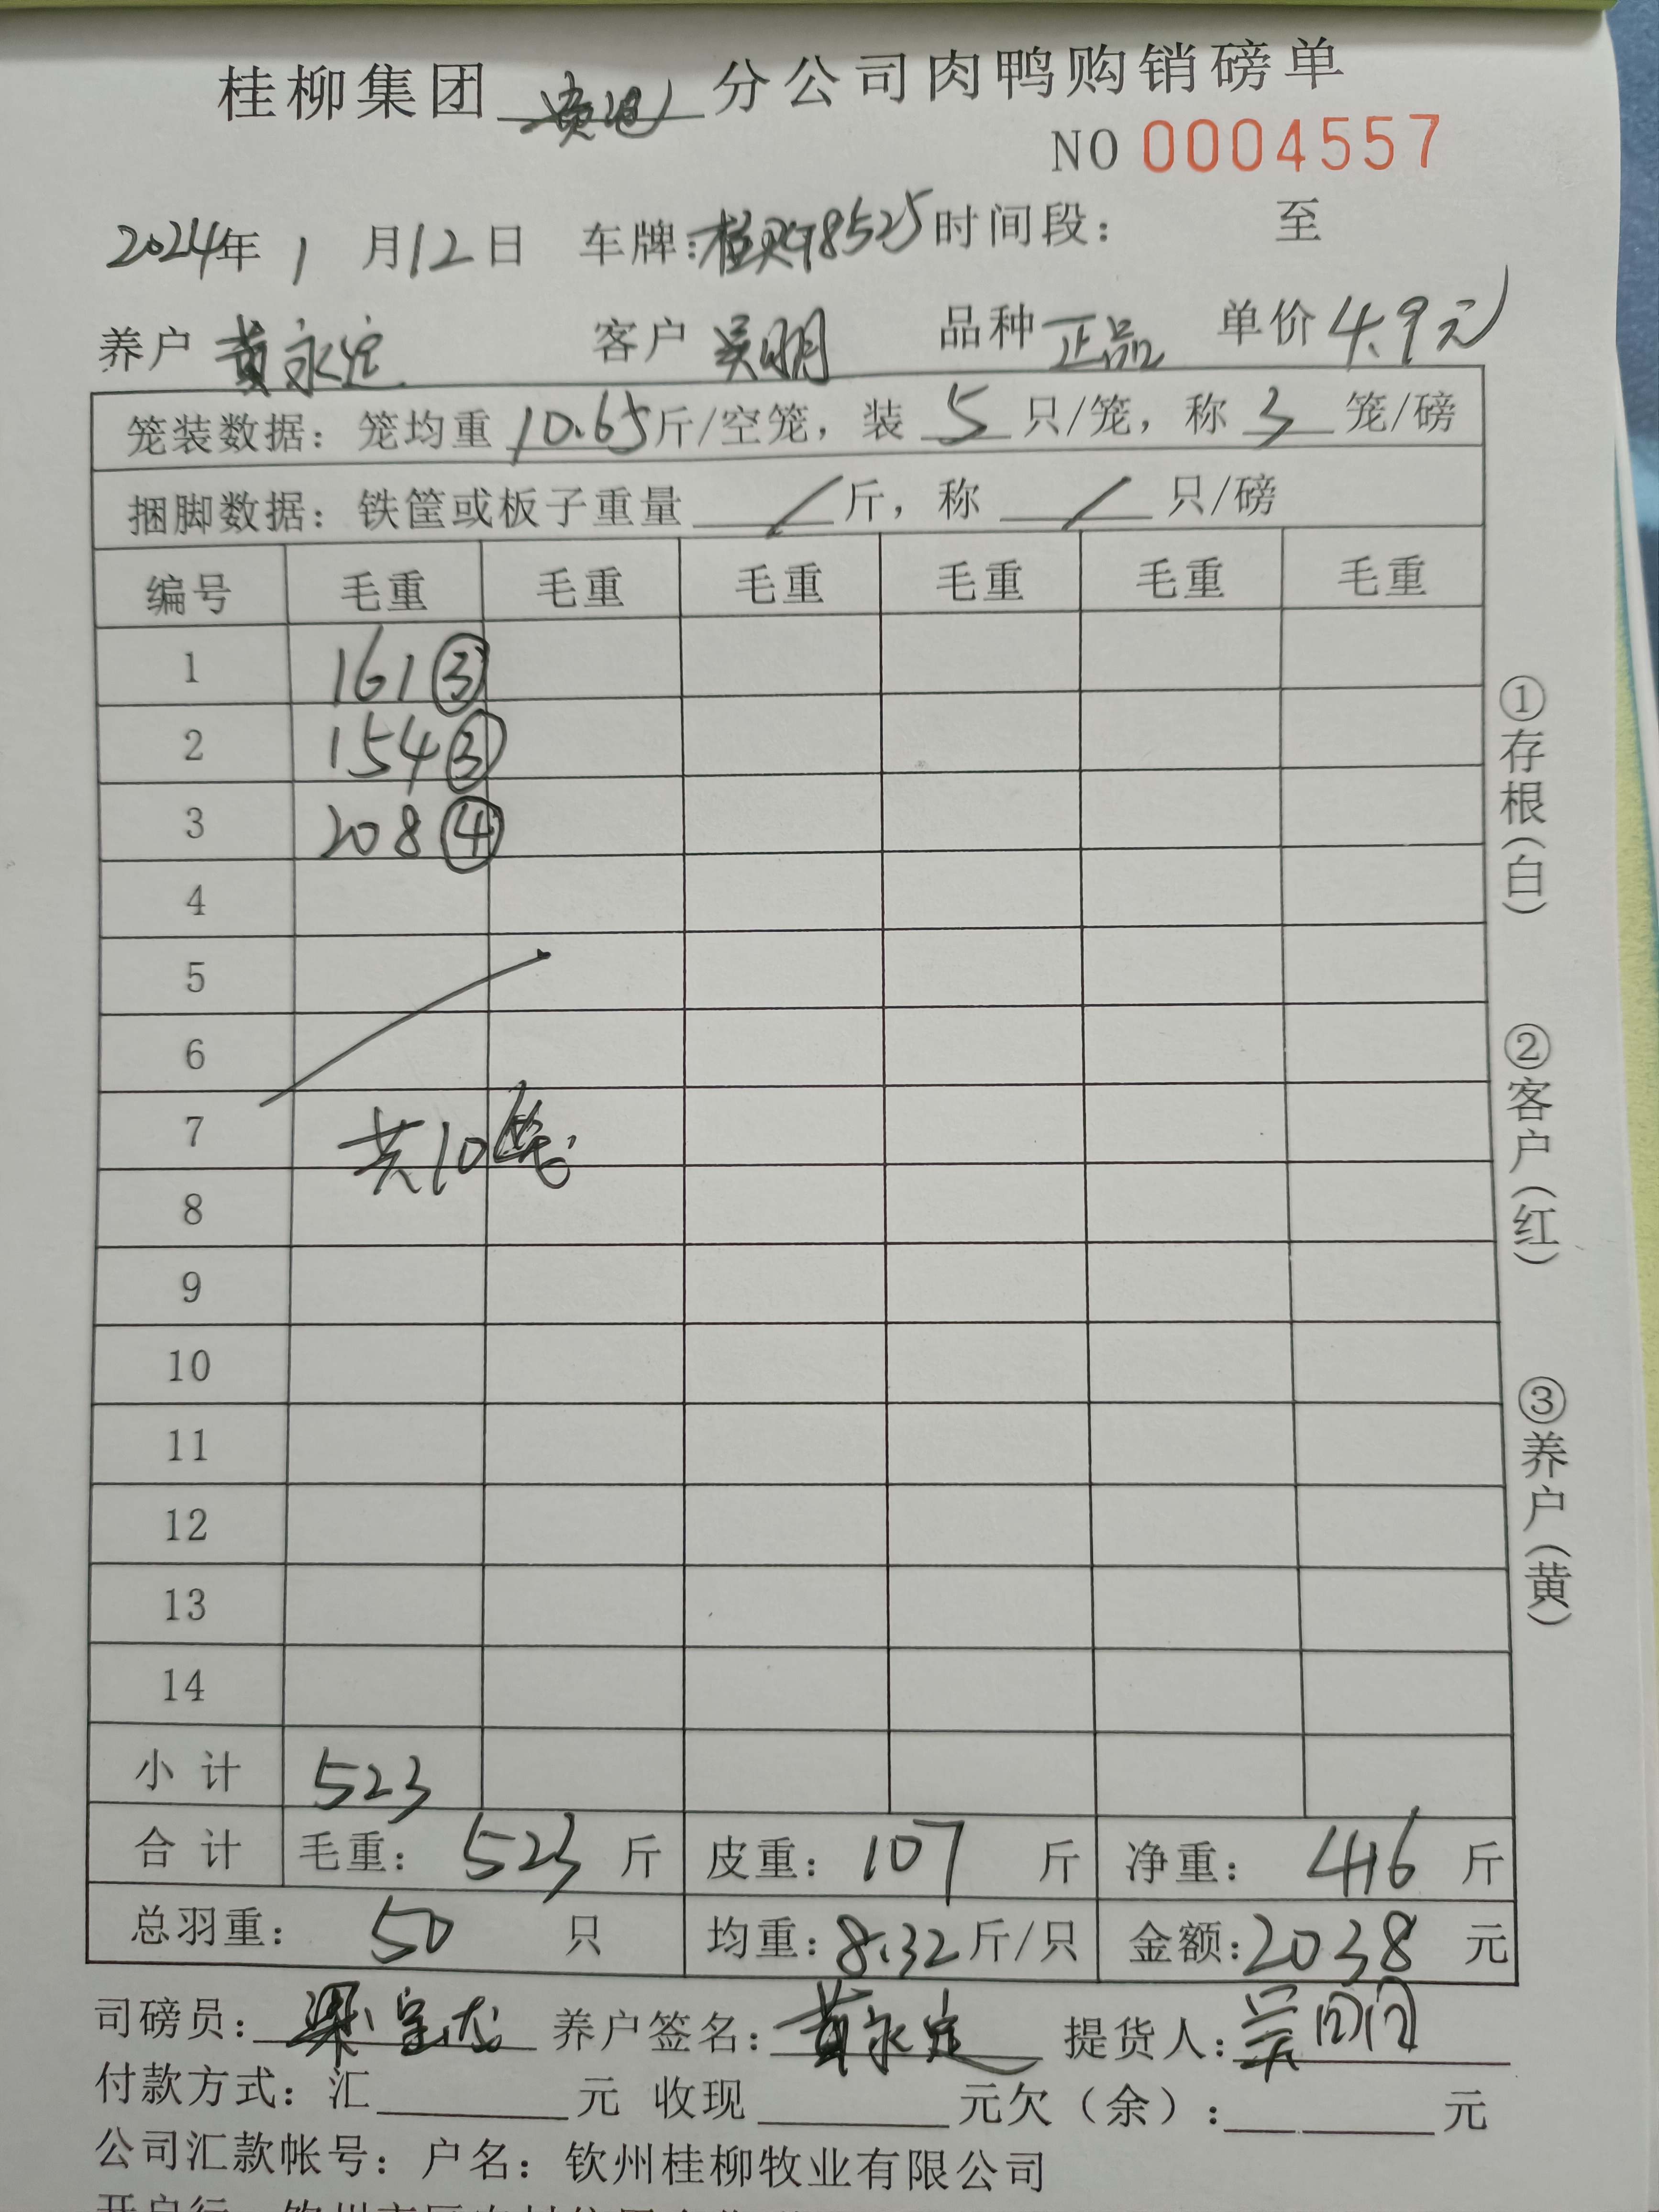 桂柳集团 黄屯 分公司肉鸭购销磅单
NO 0004557
2024年 1 月12日 车牌: 8525 时间段: 至
养户 黄永定 客户 吴明 品种 正品 单价 4.9元
笼装数据: 笼均重 10.65斤/空笼, 装 5 只/笼, 称 3 笼/磅
捆脚数据: 铁筐或板子重量 / 斤, 称 / 只/磅
编号 毛重 毛重 毛重 毛重 毛重 毛重
1 161③
2 154③
3 208④
4
5
6
7 共10笼
8
9
10
11
12
13
14
小计 523
合计 毛重: 523 斤 皮重: 107 斤 净重: 416 斤
总羽重: 50 只 均重: 8.32斤/只 金额: 2038 元
司磅员: 梁 养户签名: 黄永定 提货人: 吴明
付款方式: 汇 元 收现 元欠(余): 元
公司汇款帐号: 户名: 钦州桂柳牧业有限公司
①存根(白)
②客户(红)
③养户(黄)